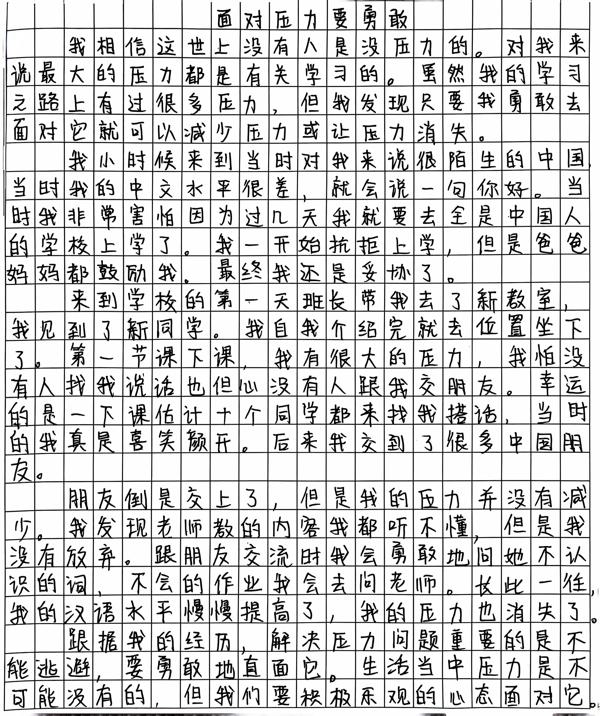 面对压力要勇敢
我相信这世上没有人是没压力的。对我来
说最大的压力都是有关学习的。虽然我的学习
之路上有过很多压力，但我发现只要我勇敢去
面对它就可以减少压力或让压力消失。
我小时候来到当时对我来说很陌生的中国，
当时我的中文水平很差，就会说一句你好。当
时我非常害怕因为过几天我就要去全是中国人
的学校上学了。我一开始抗拒上学，但是爸爸
妈妈都鼓励我。最终我还是妥协了。
来到学校的第一天班长带我去了新教室，
我见到了新同学。我自我介绍完就去位置坐下
了。第一节课下课，我有很大的压力，我怕没
有人找我说话也但心没有人跟我交朋友。幸运
的是一下课估计十个同学都来找我搭话，当时
的我真是喜笑颜开。后来我交到了很多中国朋
友。
朋友倒是交上了，但是我的压力并没有减
少。我发现老师教的内容我都听不懂，但是我
没有放弃。跟朋友交流时我会勇敢地问她不认
识的词，不会的作业我会去问老师。长此一往，
我的汉语水平慢慢提高了，我的压力也消失了。
跟据我的经历，解决压力问题重要的是不
能逃避，要勇敢地直面它。生活当中压力是不
可能没有的，但我们要积极乐观的心态面对它。